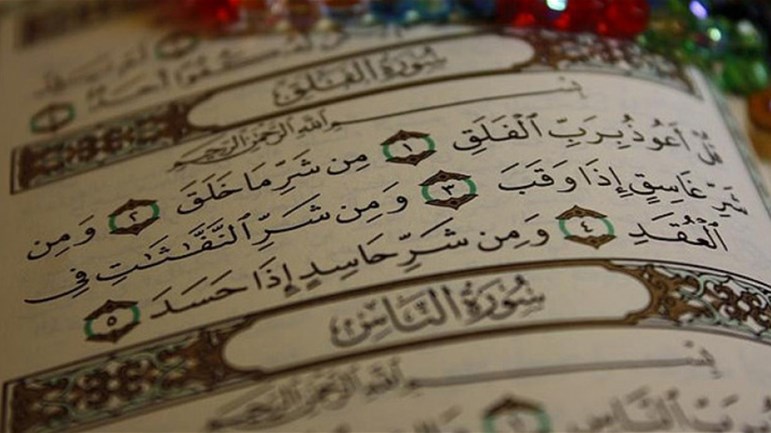 كُفُوًا أَحَدٌ ٤
سُورَةُ الْفَلَقِ
بِسْمِ اللَّهِ الرَّحْمَٰنِ الرَّحِيمِ
قُلْ أَعُوذُ بِرَبِّ ٱلْفَلَقِ ١ مِن شَرِّ مَا خَلَقَ ٢ وَمِن
شَرِّ غَاسِقٍ إِذَا وَقَبَ ٣ وَمِن شَرِّ ٱلنَّفَّٰثَٰتِ فِى
ٱلْعُقَدِ ٤ وَمِن شَرِّ حَاسِدٍ إِذَا حَسَدَ ٥
سُورَةُ النَّاسِ
بِسْمِ اللَّهِ الرَّحْمَٰنِ الرَّحِيمِ
بِرَبِّ ٱلنَّاسِ ١